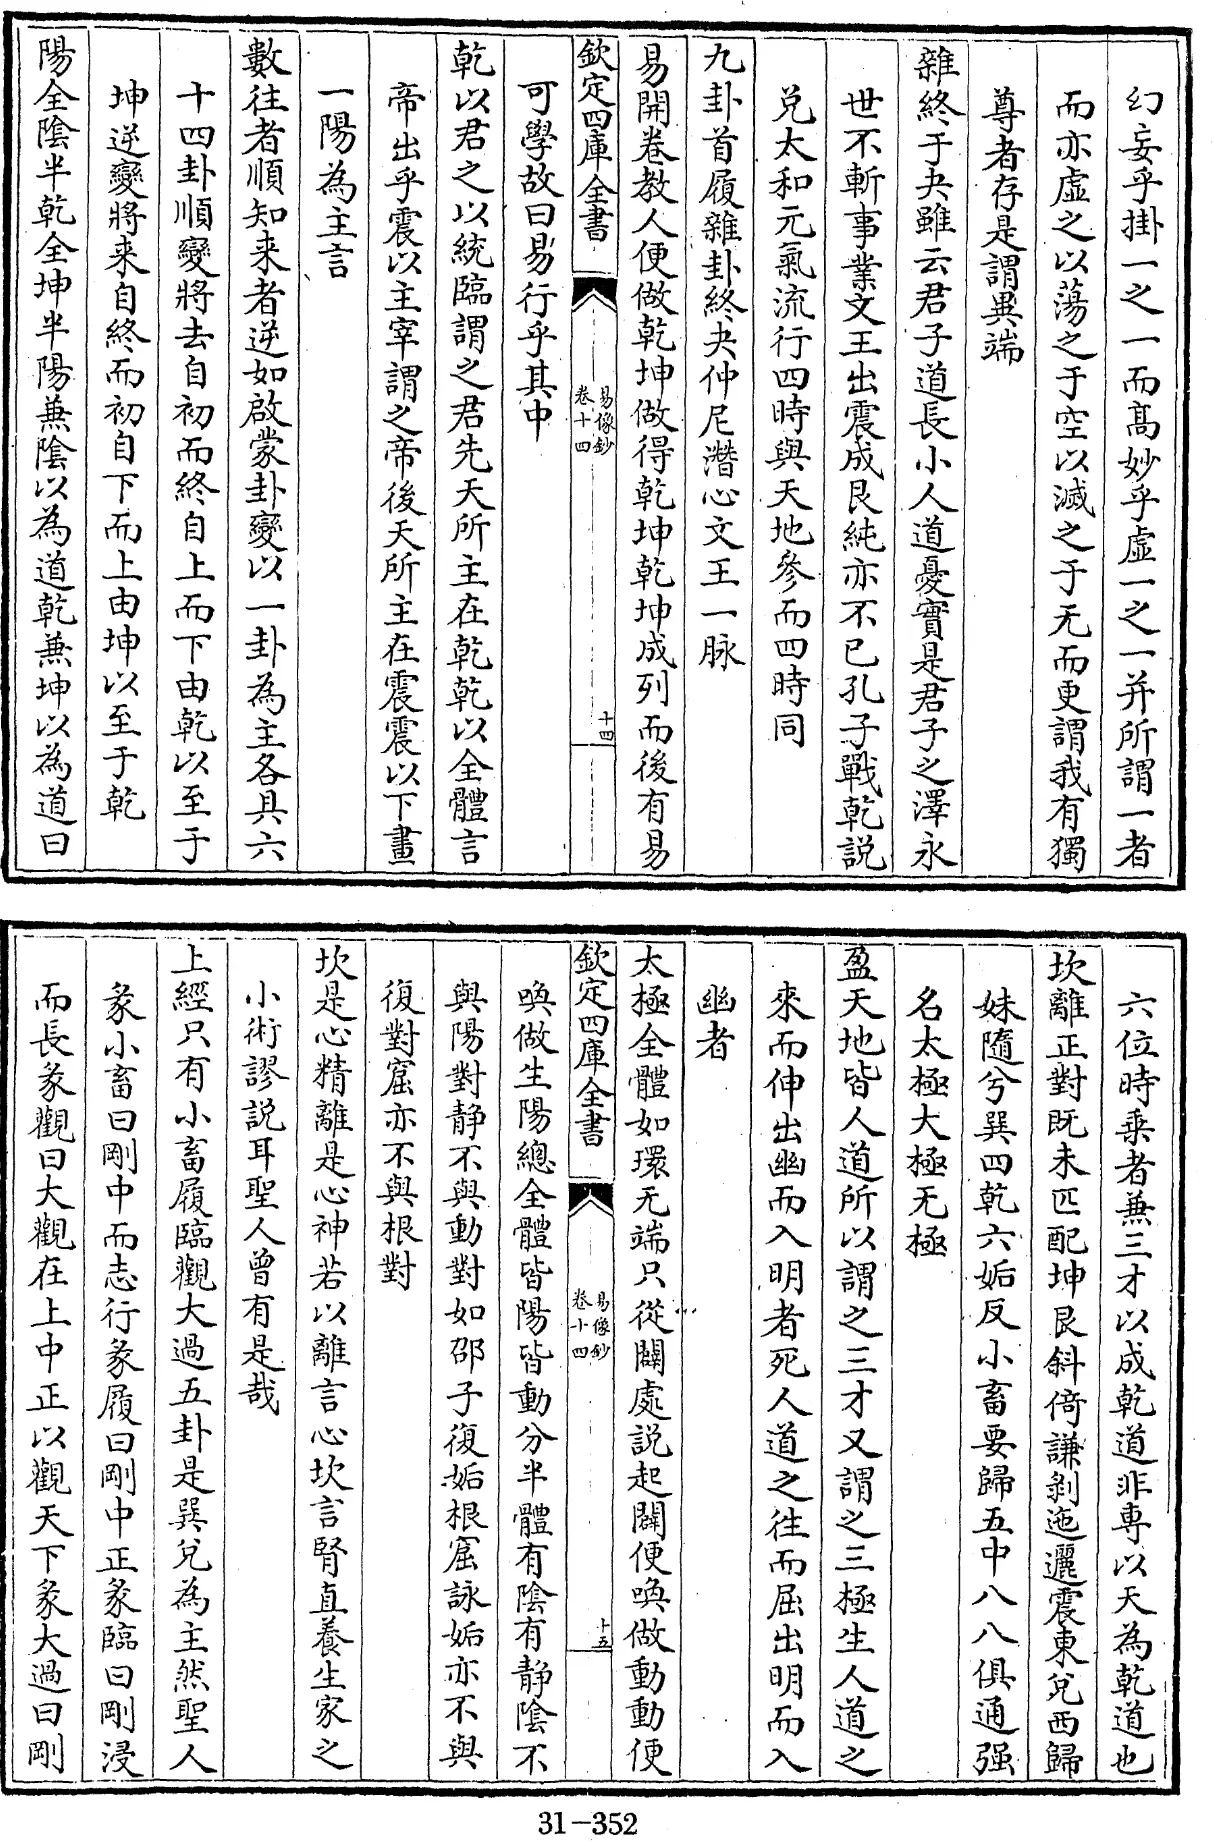 幻妄乎掛一之一而髙妙乎虛一之一并所謂一者
而亦虛之以蕩之于空以滅之于无而更謂我有獨
尊者存是謂異端
雜終于夬雖云君子道長小人道憂實是君子之澤永
世不斬事業文王出震成艮純亦不已孔子戰乾說
兌太和元氣流行四時與天地參而四時同
九卦首履雜卦終夬仲尼潛心文王一脉
易開卷教人便做乾坤做得乾坤乾坤成列而後有易
欽定四庫全書
易像鈔
卷十四
十四
可學故曰易行乎其中
乾以君之以統臨謂之君先天所主在乾乾以全體言
帝出乎震以主宰謂之帝後天所主在震震以下畫
一陽為主言
數往者順知来者逆如啟蒙卦變以一卦為主各具六
十四卦順變將去自初而終自上而下由乾以至于
坤逆變將来自終而初自下而上由坤以至于乾
陽全陰半乾全坤半陽兼陰以為道乾兼坤以為道曰
六位時乘者兼三才以成乾道非専以天為乾道也
坎離正對既未匹配坤艮斜倚謙剝迤邐震東兌西歸
妹隨兮巽四乾六姤反小畜要歸五中八八俱通强
名太極大極无極
盈天地皆人道所以謂之三才又謂之三極生人道之
來而伸出幽而入明者死人道之徃而屈出明而入
幽者
太極全體如環无端只從闢處說起闢便喚做動動便
欽定四庫全書
易像鈔
卷十四
十五
喚做生陽總全體皆陽皆動分半體有陰有靜陰不
與陽對静不與動對如邵子復姤根窟詠姤亦不與
復對窟亦不與根對
坎是心精離是心神若以離言心坎言腎直養生家之
小術謬說耳聖人曾有是哉
上經只有小畜履臨觀大過五卦是巽兌為主然聖人
彖小畜曰剛中而志行彖履曰剛中正彖臨曰剛浸
而長彖觀曰大觀在上中正以觀天下彖大過曰剛
31-352